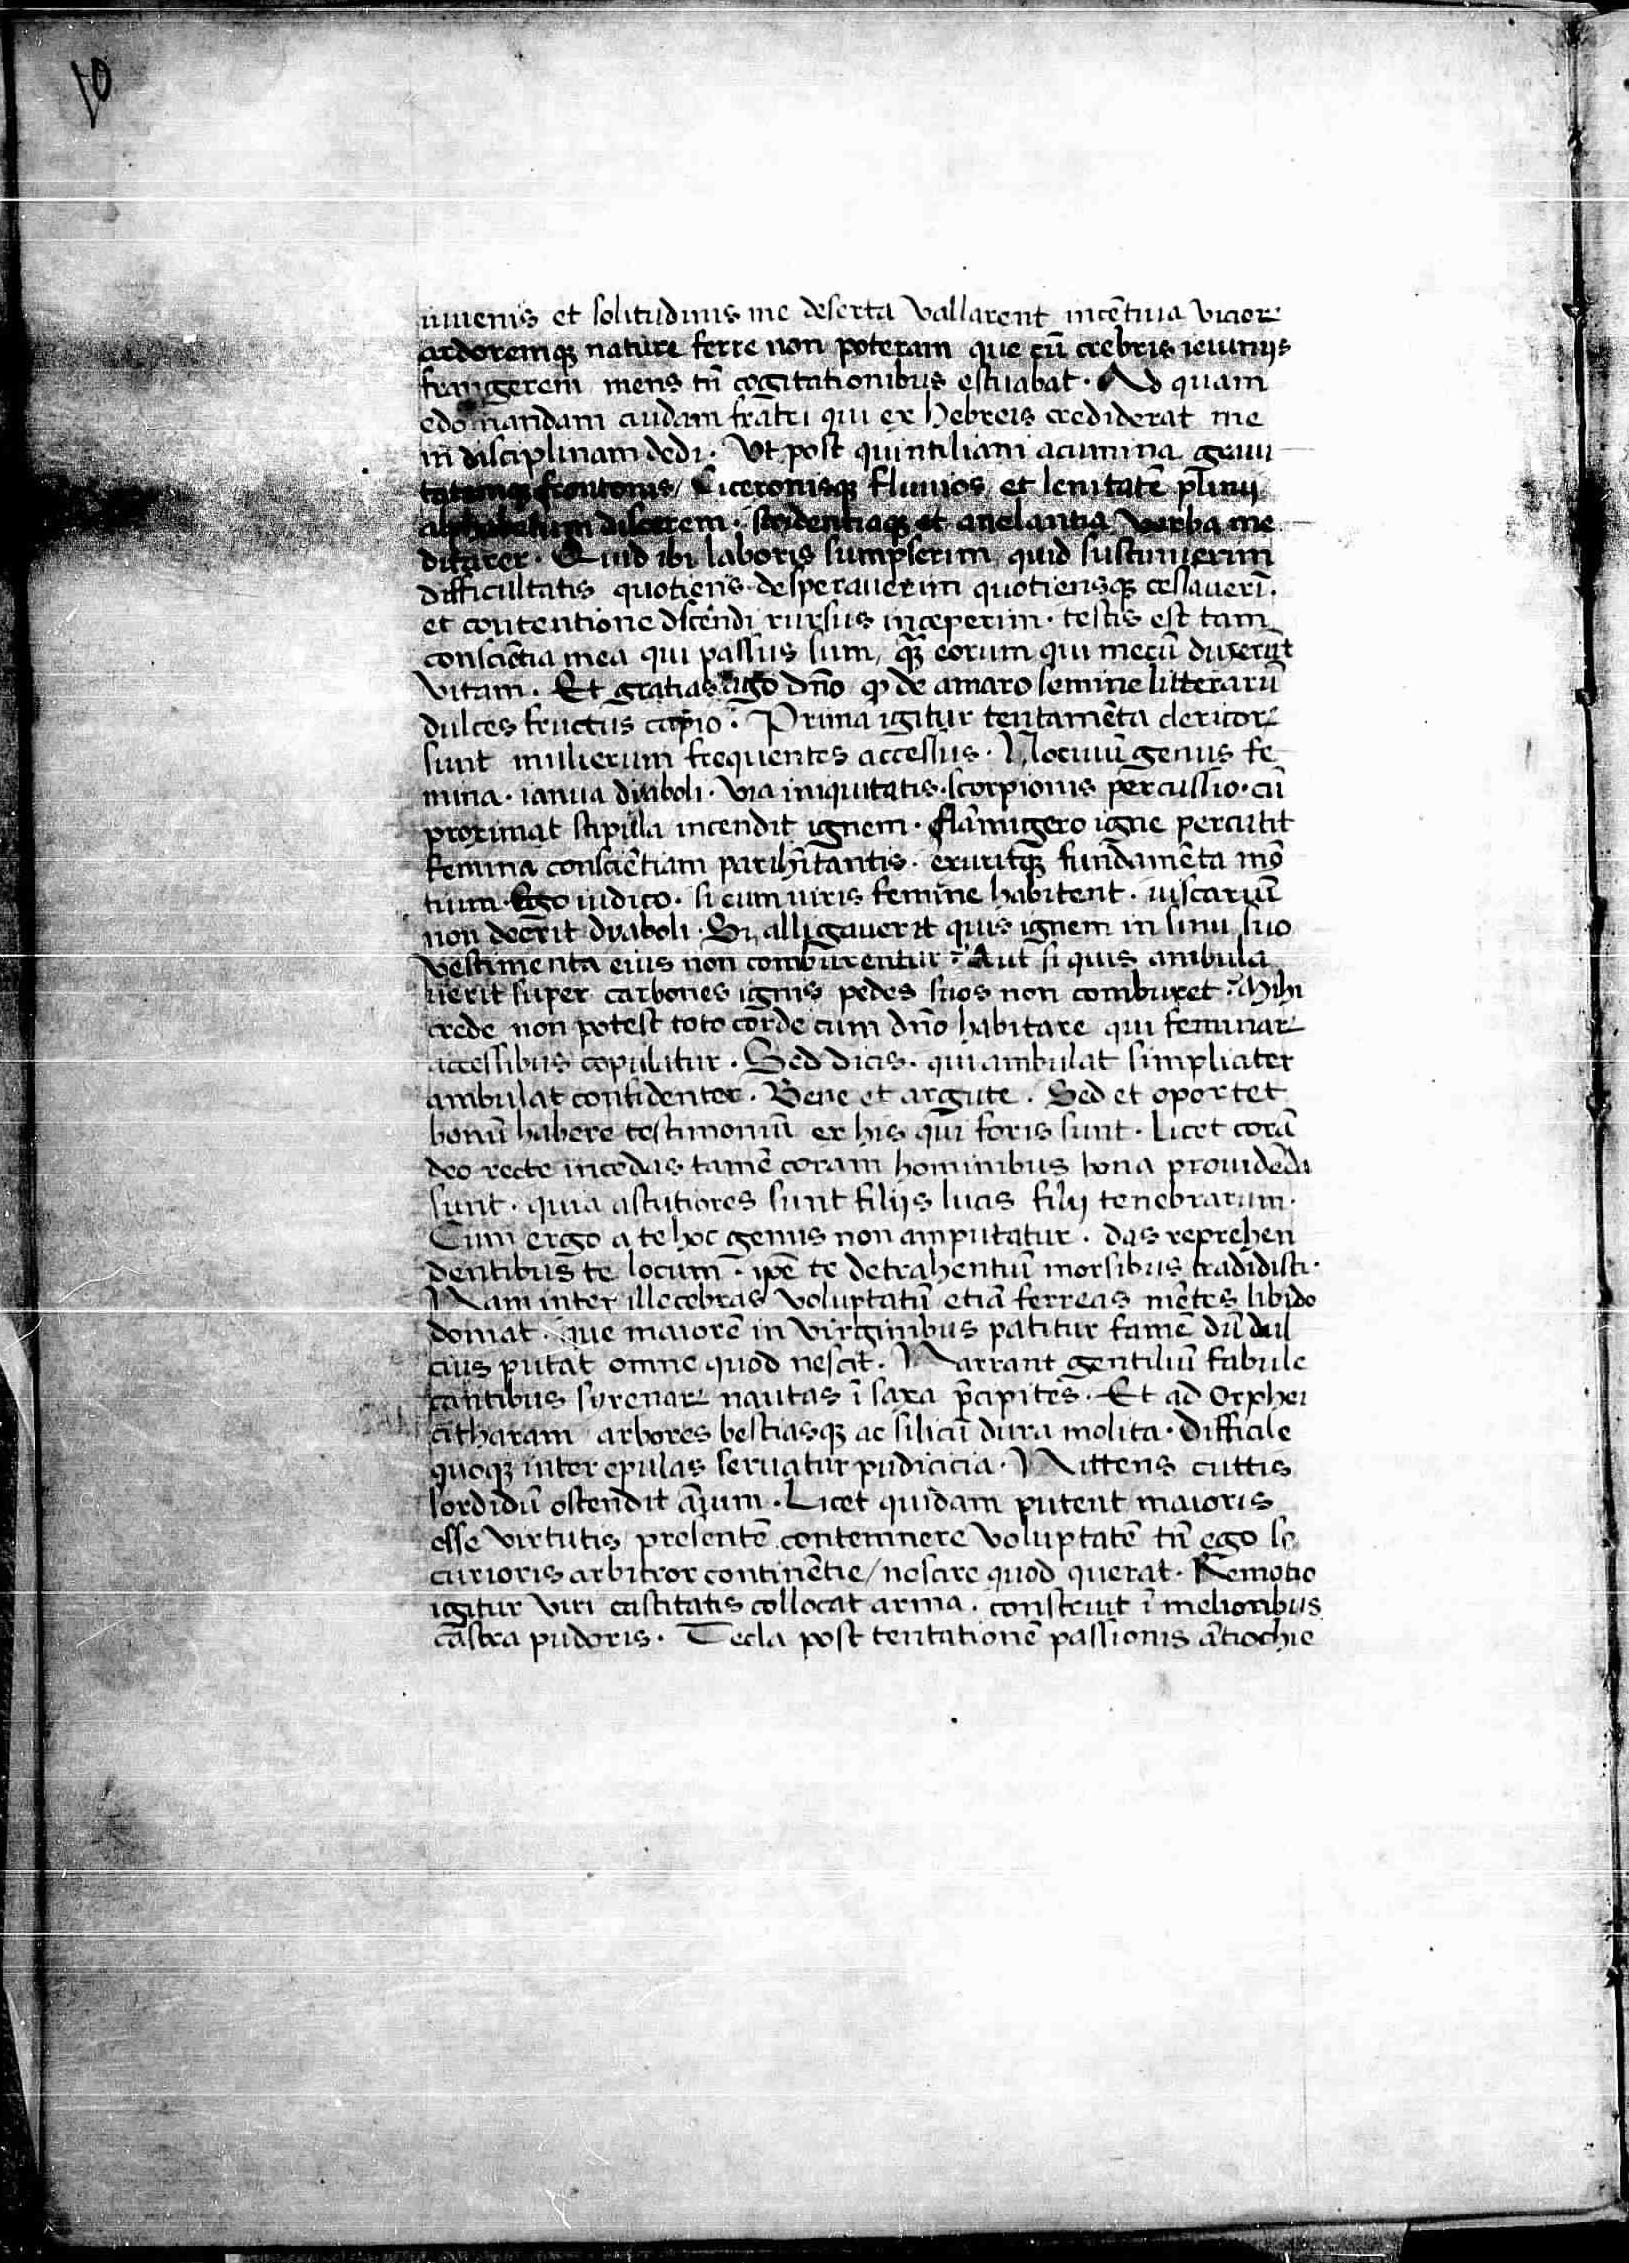 10
iuuenis et solitudinis me deserta vallarent incẽtiua vicioꝝ
ardoremqꝫ nature ferre non poteram que cũ crebris ieiunijs
frangerem mens tñ cogitationibus estuabat · Ad quam
edomandam cuidam fratri qui ex hebreis crediderat me
in disciplinam dedi · Vt post quintiliani acumina graui
tatemqꝫ frontonis / Ciceronisqꝫ fluuios et lenitatẽ plinij
alphabetum discerem · stridentiaqꝫ et anelantia verba me
ditarer · Quid ibi laboris sumpserim quid sustinuerim
difficultatis quotiens desperauerim quotiensqꝫ cessauerĩ ·
et contentione discẽndi rursus inceperim · testis est tam
consciẽtia mea qui passus sum / qꝫ̃ eorum qui mecũ duxerũt
vitam · Et gratias ago dño ꝙ de amaro semine litterarũ
dulces fructus capio · Prima igitur tentamẽta clericoꝝ
sunt mulierum frequentes accessus · Nociuũ genus fe
mina · ianua diaboli · via iniquitatis · scorpionis percussio · cũ
proximat stipula incendit ignem · flãmigero igne percutit
femina consciẽtiam parihĩtantis · exuritqꝫ fundamẽta mõ
tium · Ego iudico · si cum uiris femine habitent · uiscariũ
non deẽrit dyaboli · Si alligauerit quis ignem in sinu suo
vestimenta eius non comburentur · Aut si quis ambula
uerit super carbones ignis pedes suos non comburet · Mihi
crede non potest toto corde cum dño habitare qui feminaꝝ
accessibus copulatur · Sed dicis · qui ambulat simpliciter
ambulat confidenter · Bene et argute · Sed et oportet
bonũ habere testimoniũ ex his qui foris sunt · Licet corã
deo recte incedas tamẽ coram hominibus bona prouidẽda
sunt · quia astutiores sunt filijs lucis filij tenebrarum ·
Cum ergo a te hoc genus non amputatur · das reprehen
dentibus te locum · ipẽ te detrahentiũ morsibus tradidisti ·
Nam inter illecebras voluptatũ etiã ferreas mẽtes libido
domat · que maiorẽ in virginibus patitur famẽ dũ dul
cius putat omne quod nescit · Narrant gentiliũ fabule
cantibus syrenaꝝ nautas ĩ saxa p̃cipites · Et ad Orphei
citharam arbores bestiasqꝫ ac silicũ dura molita · Difficile
quoqꝫ inter epulas seruatur pudicicia · Nittens cuttis
sordidũ ostendit ãium · Licet quidam putent maioris
esse virtutis / presentẽ contemnere voluptatẽ tñ ego se
curioris arbitror continẽtie / nescire quod querat · Remotio
igitur viri castitatis collocat arma · construit ĩ melioribus
castra pudoris · Tecla post tentationẽ passionis ãtiochie